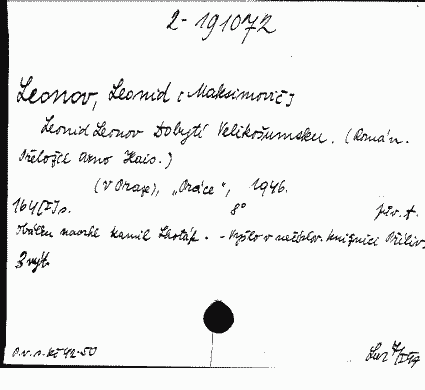 2-191072
Leonov, Leonid [Maksimovič]
Leonid Leonov Dobytí Velikošumsku. (Román.
Přeložil Arno Hais.)
(V Praze), „Práce", 1946.
164 [I] s. 8° pův. t.
Obálku navrhl Kamil Lhoták. - Vyšlo v nečíslov. knižnici Příliv.
3 vyt.